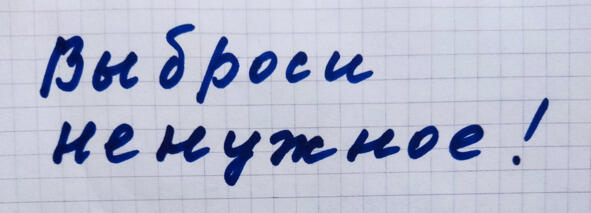 Выброси
ненужное!